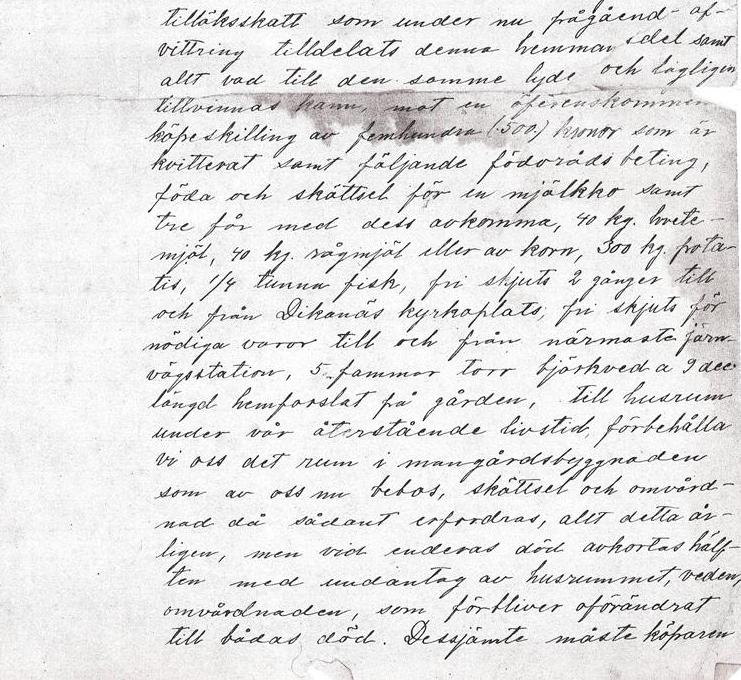 tilläksskatt som under nu pågåend- af-
vittring tilldelats denna hemmansdel samt
allt vad till den samme lyde och lagligen
tillvinnas kann, mot en öferenskommen
köpeskilling av femhundra (500.) kronor som är
kvitterat samt följande födoråds beting,
föda och skättsel för en mjälkko samt
tre får med dess avkomma, 40 kg. hvete-
mjöl, 40 kg. rågmjöl eller av korn, 300 kg. pota-
tis, 1/4 tunna fisk, fri skjuts 2 gånger till
och från Dikanäs kyrkoplats, fri skjuts för
nödiga varor till och från närmaste järn-
vägsstation, 5 fammar torr björkved a 9 dec.
längd hemforslat på gården, till husrum
under vår återstående livstid, förbehålla
vi oss det rum i mangårdsbyggnaden
som av oss nu bebos, skättsel och omvård-
nad då sådant erfordras, allt detta år-
ligen, men vid enderas död avkortas hälf-
ten med undantag av husrummet, veden,
omvårdnaden, som förbliver oförändrat
till bådas död. Dessjämte måste köparen